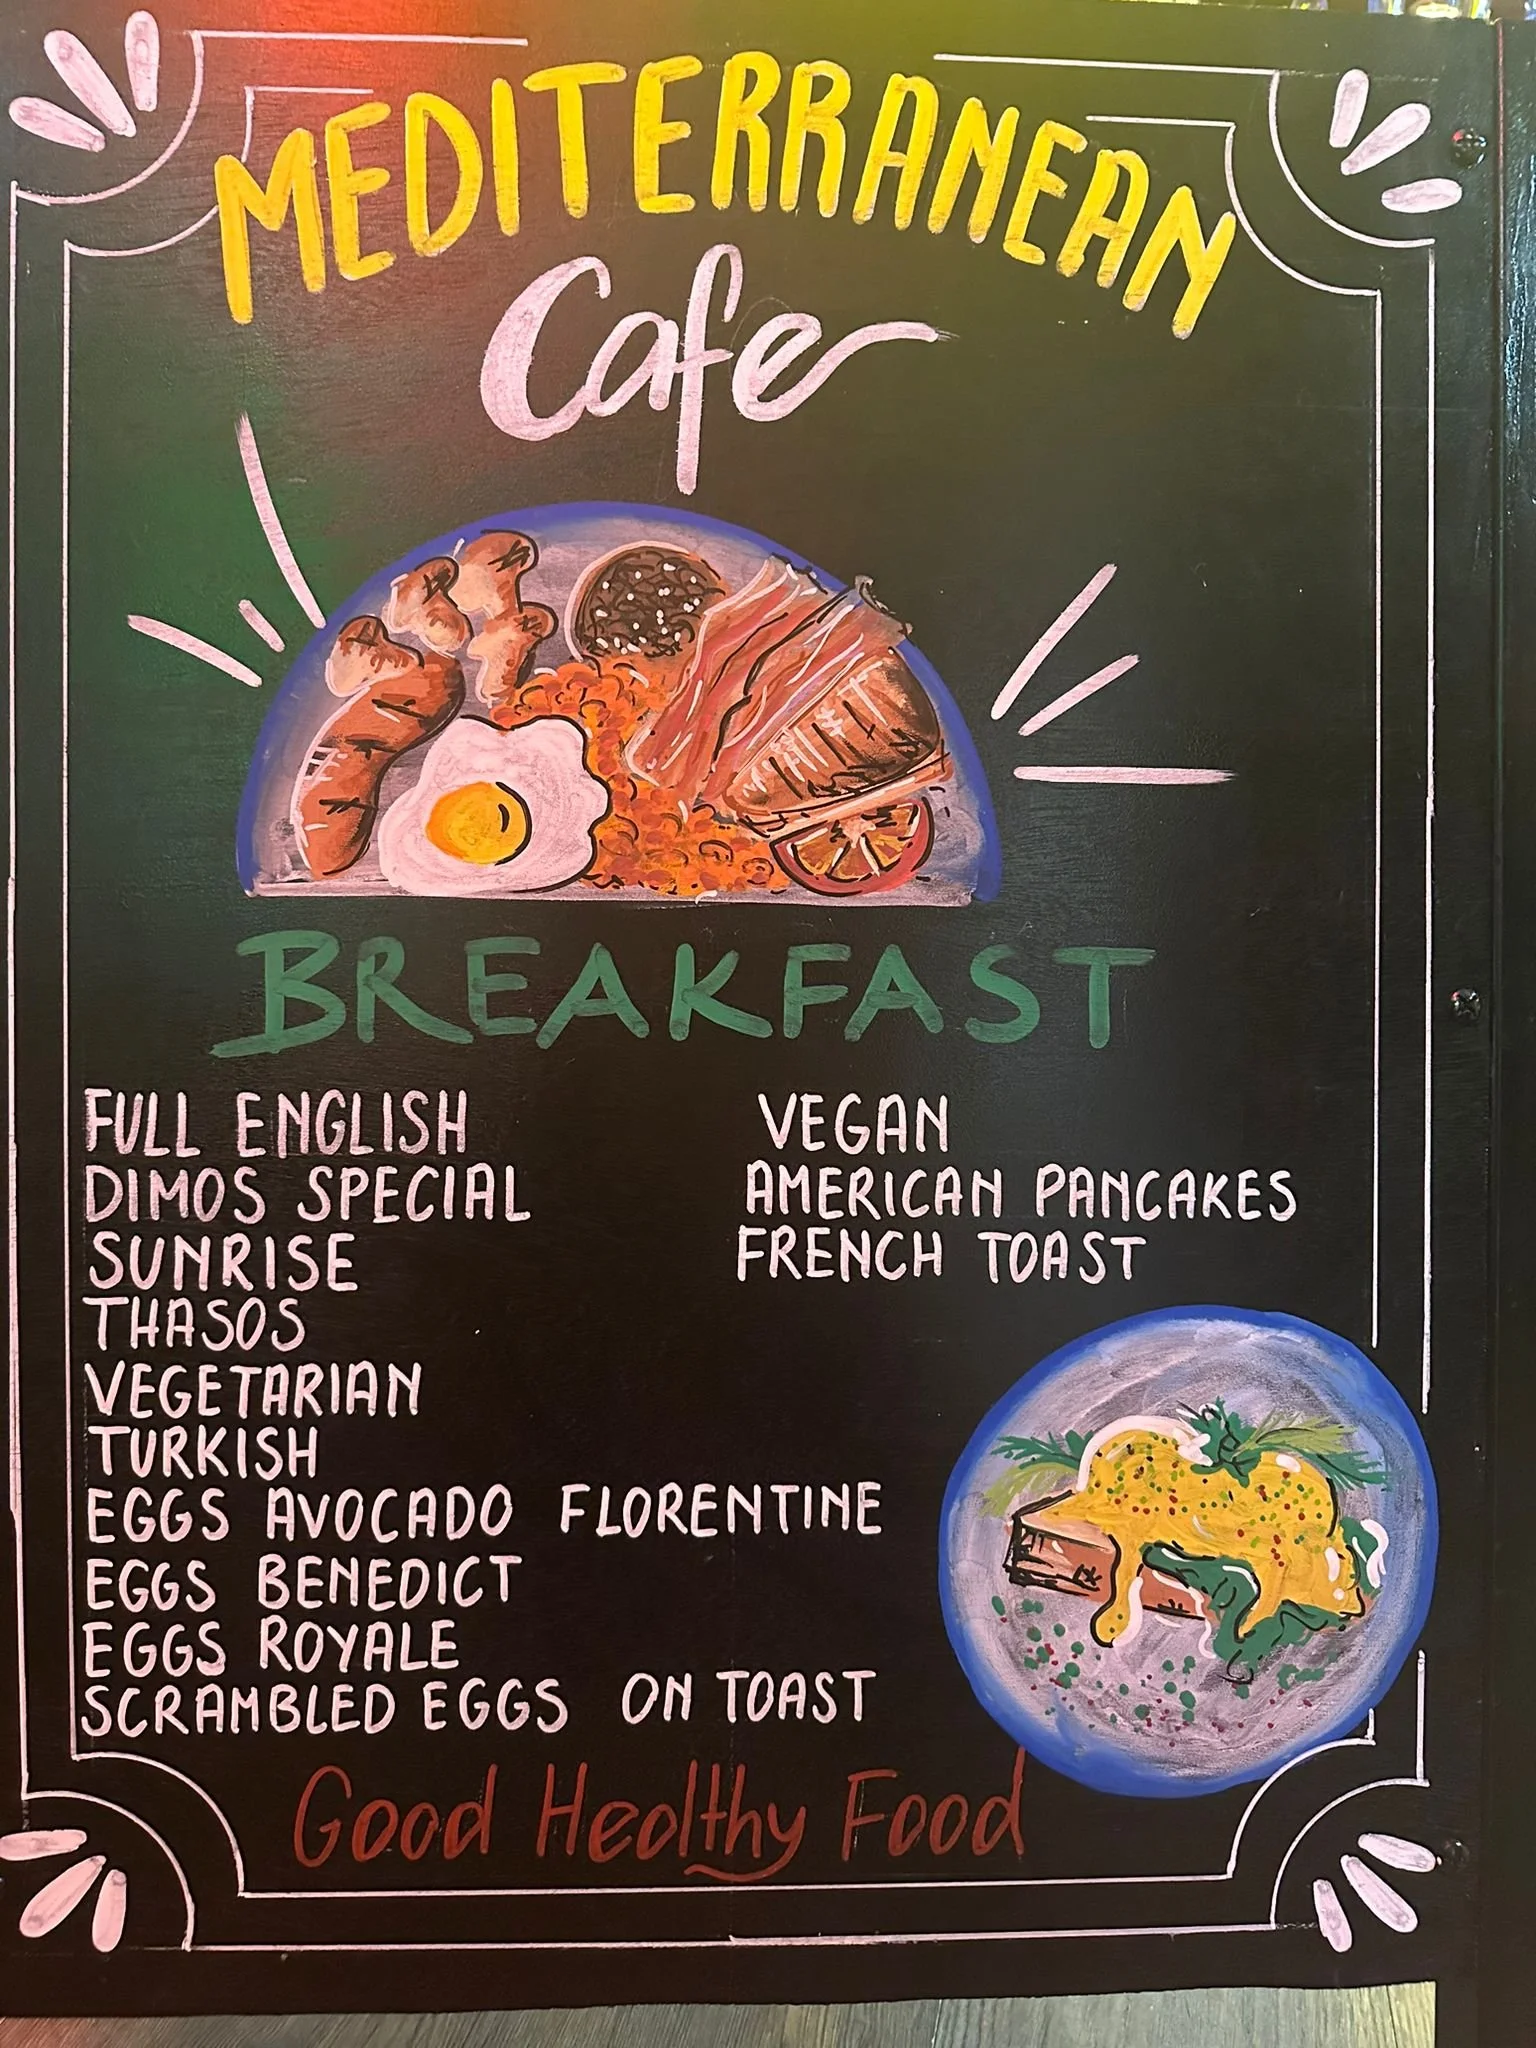 MEDITERRANEAN
Cafe
BREAKFAST
FULL ENGLISH
DIMOS SPECIAL
SUNRISE
THASOS
VEGETARIAN
TURKISH
EGGS AVOCADO FLORENTINE
EGGS BENEDICT
EGGS ROYALE
SCRAMBLED EGGS ON TOAST
VEGAN
AMERICAN PANCAKES
FRENCH TOAST
Good Healthy Food